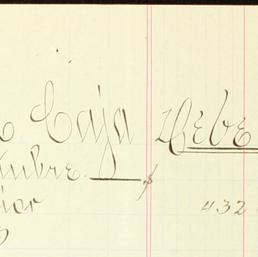 Caja Debe
tubre
ior
432